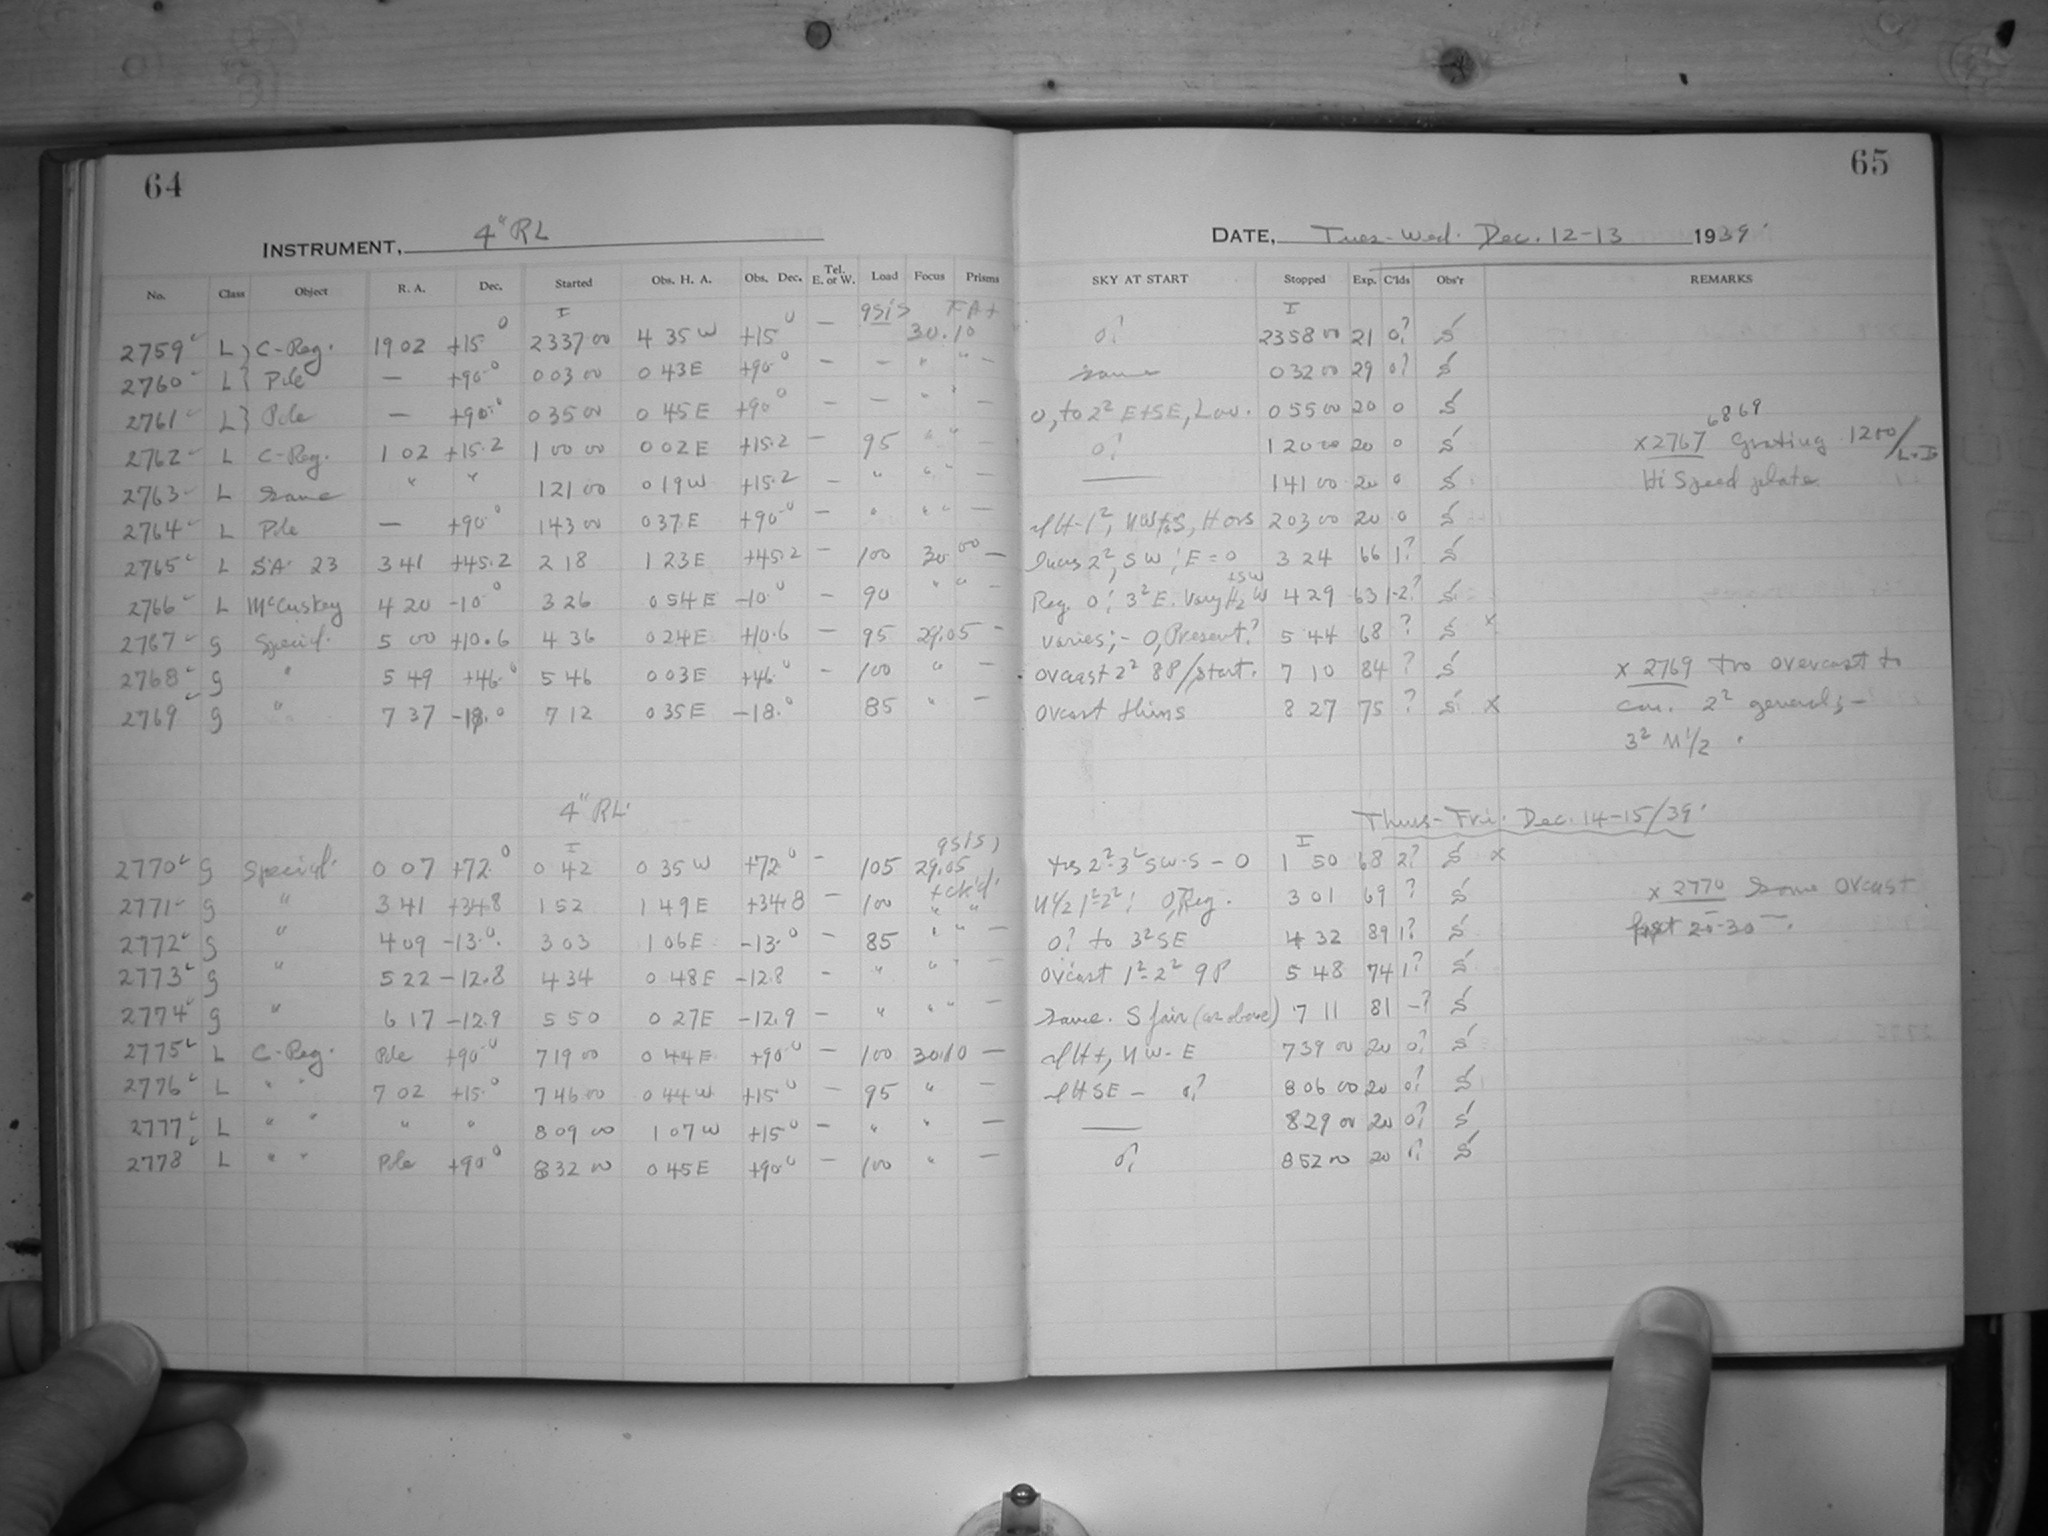 64
65
INSTRUMENT, 4" RL
DATE, Tues-Wed. Dec. 12-13 1939
No. Class Object R. A. Dec. Started Obs. H. A. Obs. Dec. Tel. E. or W. Load Focus Prisms SKY AT START Stopped Exp. C'lds Obs'r REMARKS
2759 L C-Reg. 19 02 +15° 23 37 00 4 35 W +15° — 30.10 0? 23 58 00 21 0? S
2760 L Pole — +90° 0 03 00 0 43 E +90° — — " " — same 0 32 00 29 0? S
2761 L Pole — +90° 0 35 00 0 45 E +90° — — " 0, to 2² E+SE, Low. 0 55 00 20 0 S
2762 L C-Reg. 1 02 +15.2 1 00 00 0 02 E +15.2 — 95 " " — 0? 1 20 00 20 0 S x 2767 6869 Grating 1200/
2763 L Same " " 1 21 00 0 19 W +15.2 — " " " — —— 1 41 00 20 0 S Hi Speed plate
2764 L Pole — +90° 1 43 00 0 37 E +90° — " " " — 2 03 00 20 0 S
2765 L S.A. 23 3 41 +45.2 2 18 1 23 E +45.2 — 100 30.00 — 2², SW; E = 0 3 24 66 1? S
2766 L McCuskey 4 20 -10° 3 26 0 54 E -10° — 90 " " — Reg. 0; 3² E. Vary 4 29 63 1-2? S
2767 g Special. 5 00 +10.6 4 36 0 24 E +10.6 — 95 29.05 — varies;- 0, Present? 5 44 68 ? S x
2768 g " 5 49 +46° 5 46 0 03 E +46° — 100 " — ovcast 2² 8P/start. 7 10 84 ? S x 2769 too overcast to
2769 g " 7 37 -18.° 7 12 0 35 E -18.° 85 " — Ovcast thins 8 27 75 ? S x con. 2² general;-
3² N 1/2
4" RL
Thurs-Fri. Dec. 14-15/39
2770 g Special. 0 07 +72° 0 42 0 35 W +72° — 105 29.05 2²-3² SW-S - 0 1 50 68 2? S x
+ ck'd.
2771 g " 3 41 +34.8 1 52 1 49 E +34.8 — 100 " " N 1/2 1²-2²; 0, Reg. 3 01 69 ? S x 2770 Some Ovcast
2772 g " 4 09 -13.° 3 03 1 06 E -13.° — 85 " " — 0? to 3² SE 4 32 89 1? S first 25-30
2773 g " 5 22 -12.8 4 34 0 48 E -12.8 — " " " — Ovcast 1²-2² 9P 5 48 74 1? S
2774 g " 6 17 -12.9 5 50 0 27 E -12.9 — " " " — Same. S fair (as above) 7 11 81 -? S
2775 L C-Reg. Pole +90° 7 19 00 0 44 E +90° — 100 30.10 — NW-E 7 39 00 20 0? S
2776 L " " 7 02 +15° 7 46 00 0 44 W +15° — 95 " — SE — 0? 8 06 00 20 0? S
2777 L " " " " 8 09 00 1 07 W +15° — " " — —— 8 29 00 20 0? S
2778 L " " Pole +90° 8 32 00 0 45 E +90° — 100 " — 0? 8 52 00 20 0? S